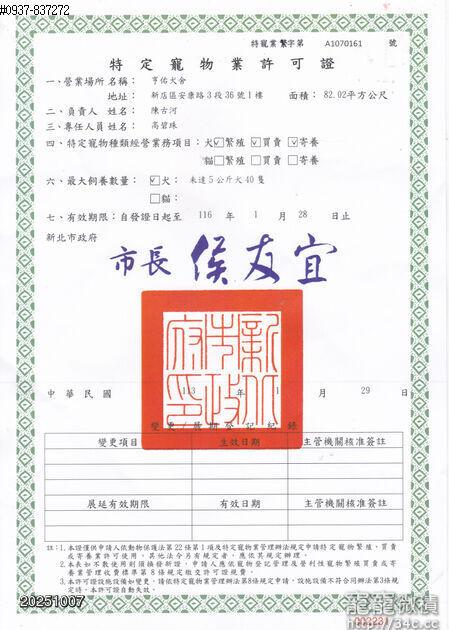 #0937-837272
特寵業繁字第 A1070161 號
特定寵物業許可證
一、營業場所名稱： 亨佑犬舍
地址： 新店區安康路3段36號1樓 面積： 82.02平方公尺
二、負責人姓名： 陳古河
三、專任人員姓名： 高碧珠
四、特定寵物種類經營業務項目： 犬☑繁殖 ☑買賣 ☑寄養
貓□繁殖 □買賣 □寄養
六、最大飼養數量： ☑犬： 未達5公斤犬40隻
□貓：
七、有效期限：自發證日起至 116 年 1 月 28 日止
新北市政府
市長 侯友宜
新北市政府印
中華民國 113 年 1 月 29 日
變更/展期登記紀錄
變更項目 生效日期 主管機關核准簽註
展延有效期限 有效日期 主管機關核准簽註
註：1.本證僅供申請人依動物保護法第22條第1項及特定寵物業管理辦法規定申請特定寵物繁殖、買賣
或寄養業許可使用，其他法令另有規定者，應依其規定辦理。
2.本表如不敷使用則須換發新證，申請人應依寵物登記管理及營利性寵物繁殖買賣或寄
養業管理收費標準第8條規定繳交許可證規費。
3.本許可證設施設備如變更，請依特定寵物業管理辦法第8條規定申請，設施設備不符合同辦法第3條規
定時，本許可證自動失效。
20251007
003231
龍龍微積
http://34c.cc